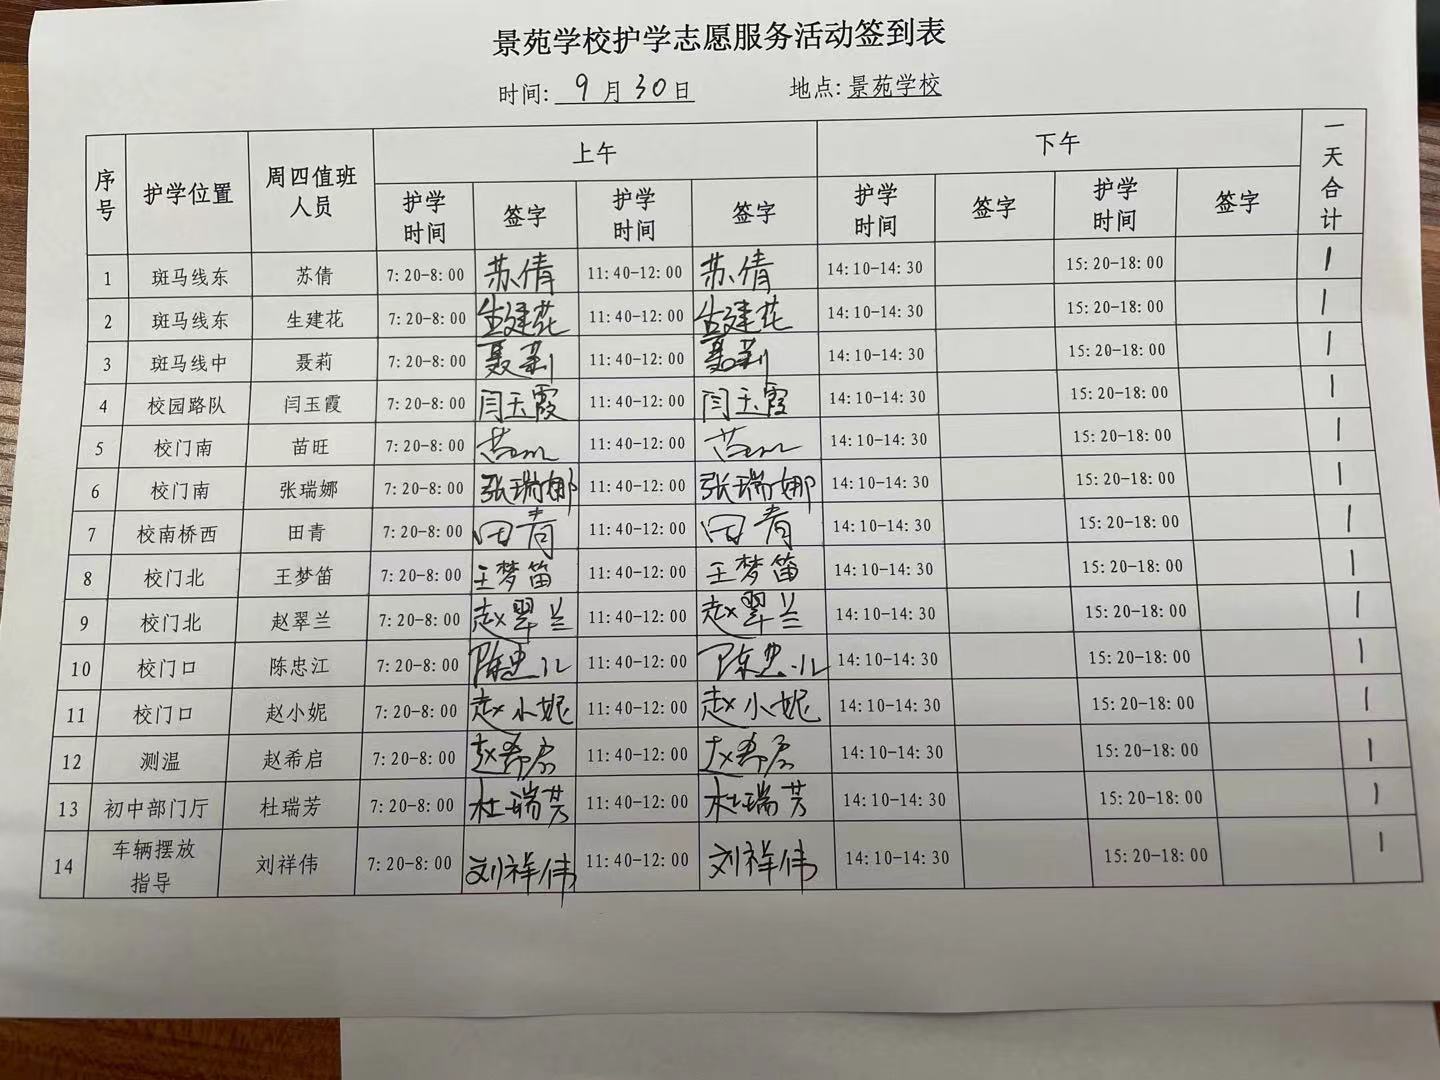 景苑学校护学志愿服务活动签到表
时间: 9月30日 地点: 景苑学校
序号 护学位置 周四值班人员 上午 下午 一天合计
护学时间 签字 护学时间 签字 护学时间 签字 护学时间 签字
1 斑马线东 苏倩 7:20-8:00 苏倩 11:40-12:00 苏倩 14:10-14:30 15:20-18:00 1
2 斑马线东 生建花 7:20-8:00 生建花 11:40-12:00 生建花 14:10-14:30 15:20-18:00 1
3 斑马线中 聂莉 7:20-8:00 聂莉 11:40-12:00 聂莉 14:10-14:30 15:20-18:00 1
4 校园路队 闫玉霞 7:20-8:00 闫玉霞 11:40-12:00 闫玉霞 14:10-14:30 15:20-18:00 1
5 校门南 苗旺 7:20-8:00 苗旺 11:40-12:00 苗旺 14:10-14:30 15:20-18:00 1
6 校门南 张瑞娜 7:20-8:00 张瑞娜 11:40-12:00 张瑞娜 14:10-14:30 15:20-18:00 1
7 校南桥西 田青 7:20-8:00 田青 11:40-12:00 田青 14:10-14:30 15:20-18:00 1
8 校门北 王梦笛 7:20-8:00 王梦笛 11:40-12:00 王梦笛 14:10-14:30 15:20-18:00 1
9 校门北 赵翠兰 7:20-8:00 赵翠兰 11:40-12:00 赵翠兰 14:10-14:30 15:20-18:00 1
10 校门口 陈忠江 7:20-8:00 陈忠江 11:40-12:00 陈忠江 14:10-14:30 15:20-18:00 1
11 校门口 赵小妮 7:20-8:00 赵小妮 11:40-12:00 赵小妮 14:10-14:30 15:20-18:00 1
12 测温 赵希启 7:20-8:00 赵希启 11:40-12:00 赵希启 14:10-14:30 15:20-18:00 1
13 初中部门厅 杜瑞芳 7:20-8:00 杜瑞芳 11:40-12:00 杜瑞芳 14:10-14:30 15:20-18:00 1
14 车辆摆放指导 刘祥伟 7:20-8:00 刘祥伟 11:40-12:00 刘祥伟 14:10-14:30 15:20-18:00 1